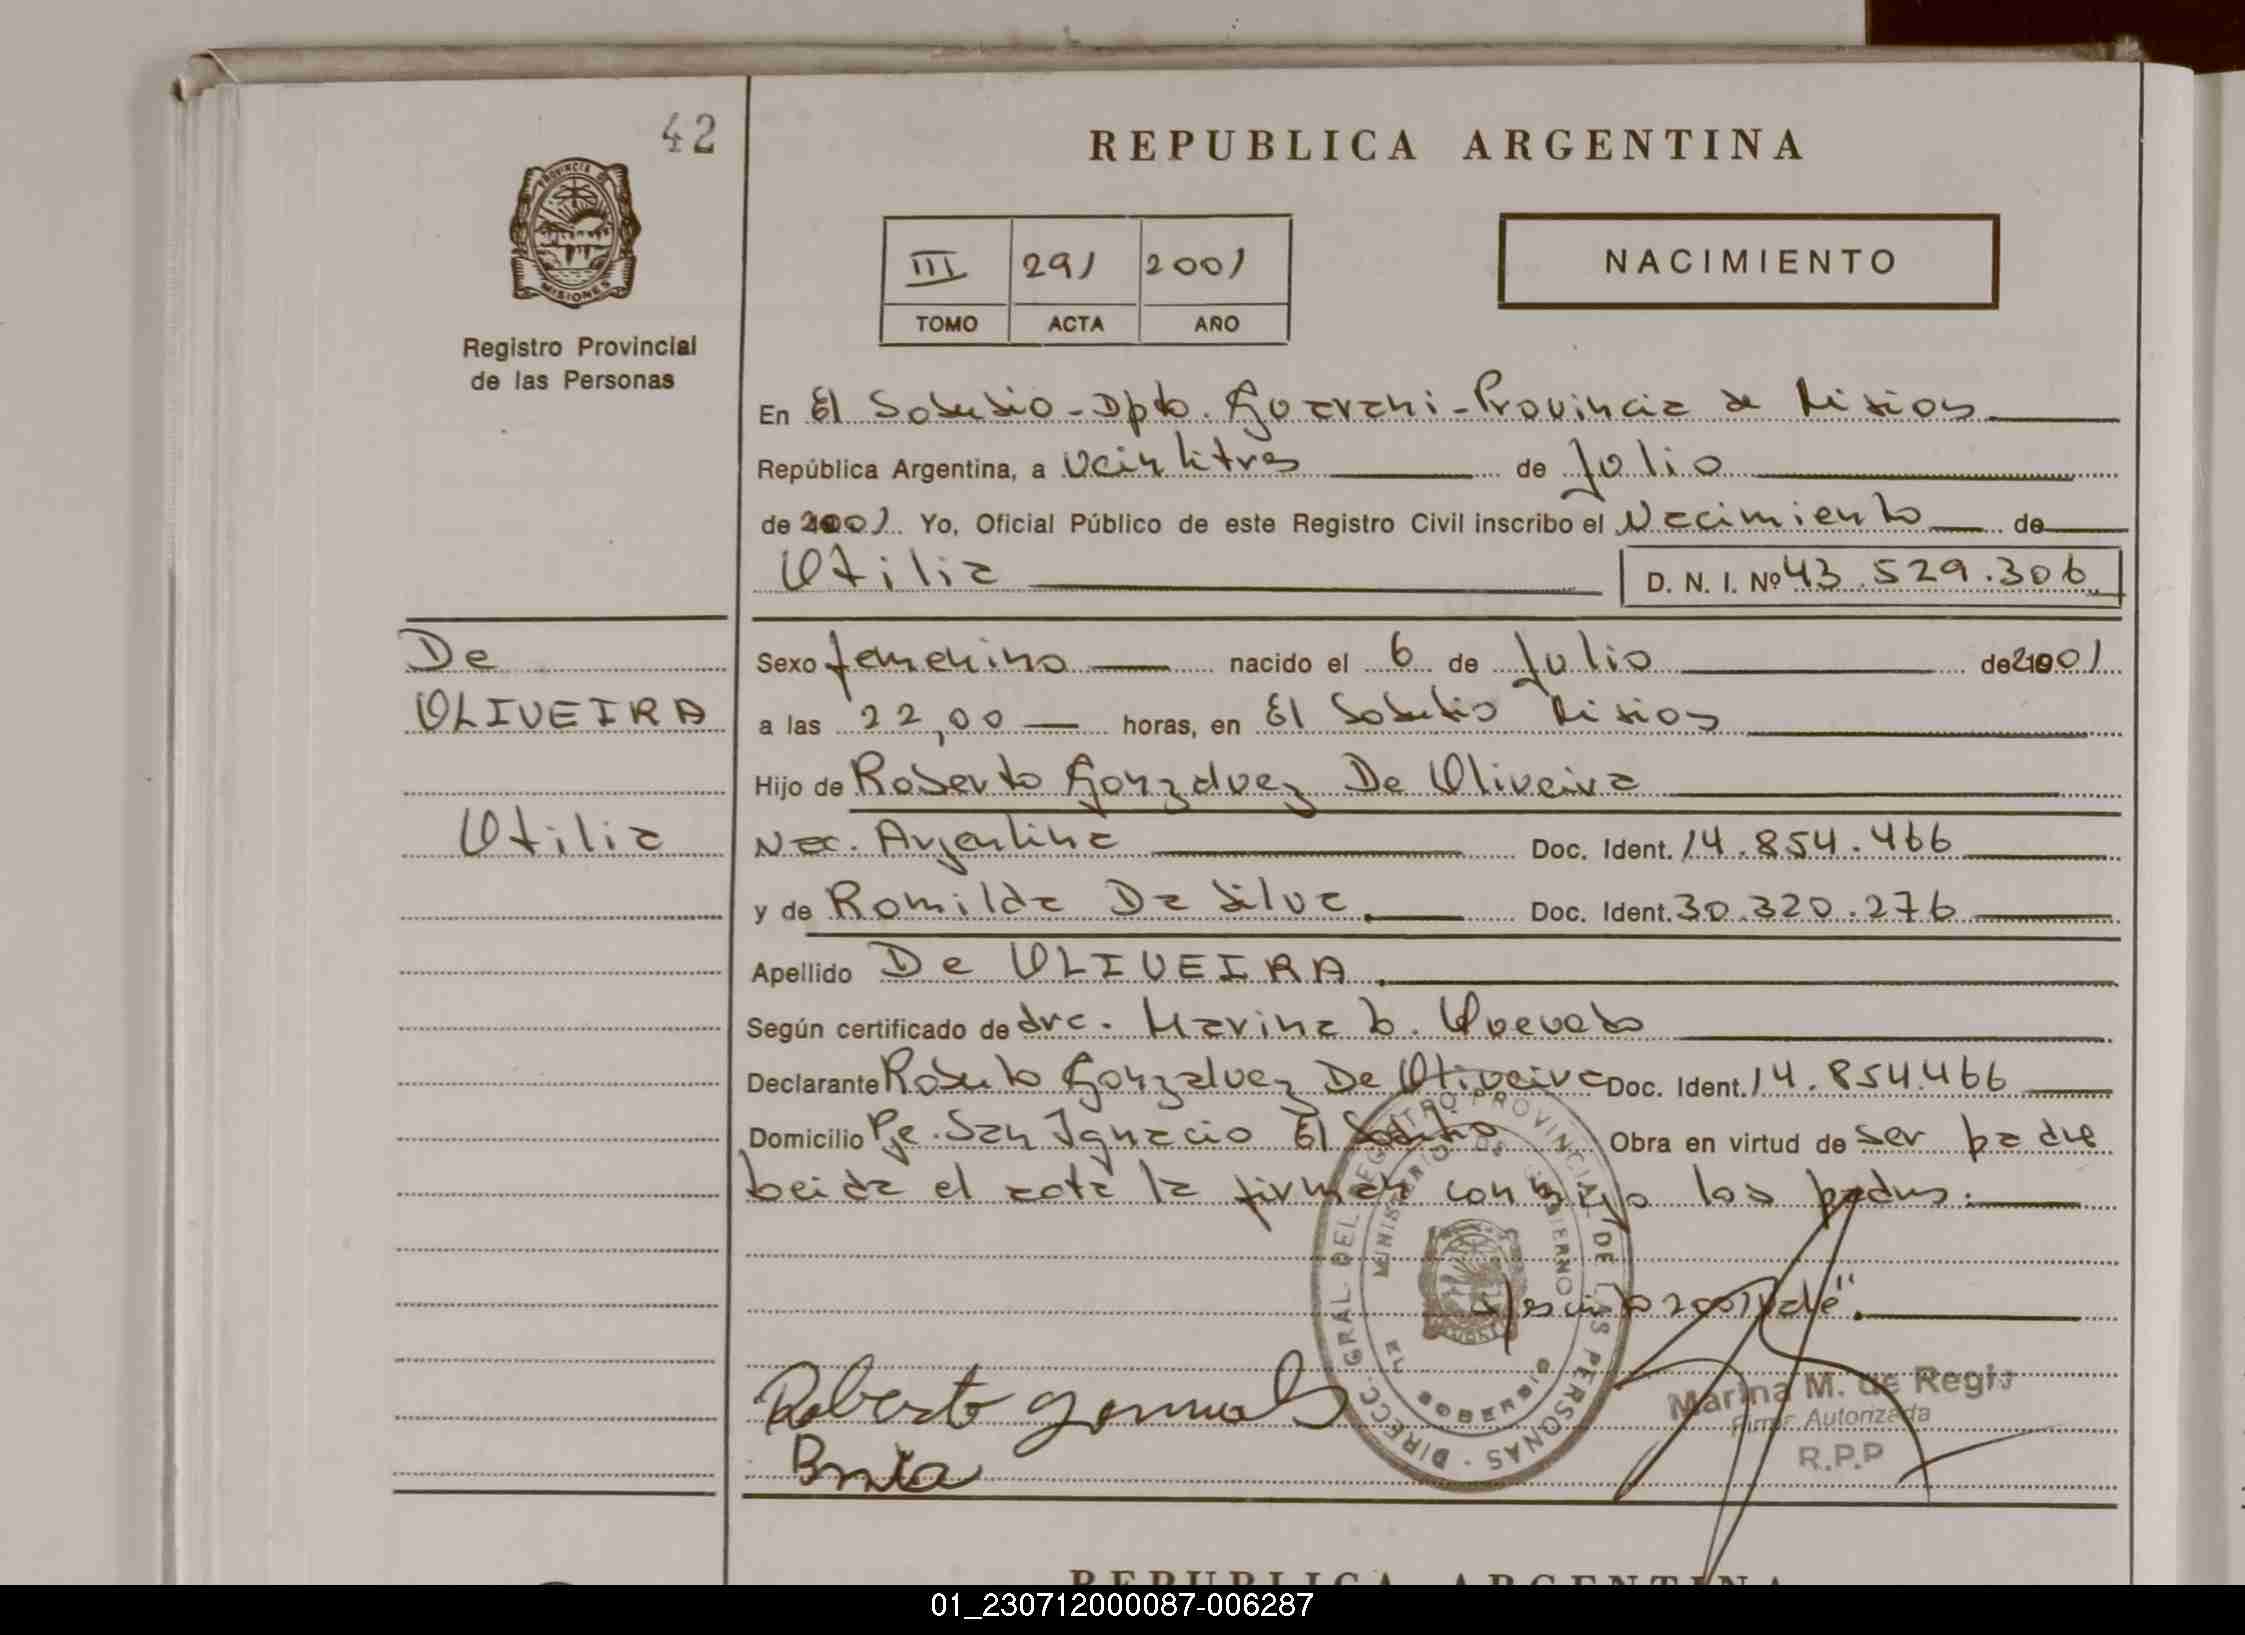 42
REPUBLICA ARGENTINA
PROVINCIA DE
MISIONES
Registro Provincial
de las Personas
III 291 2001
TOMO ACTA AÑO
NACIMIENTO
En El Soberbio - Dpto. Guarani - Provincia de Misiones
República Argentina, a veintitres de Julio
de 2001 Yo, Oficial Público de este Registro Civil inscribo el Nacimiento de
Otilia D. N. I. Nº 43.529.306
De
OLIVEIRA
Otilia
Sexo femenino nacido el 6 de Julio de 2001
a las 22,00 horas, en El Soberbio Misiones
Hijo de Roberto Gonzalvez De Oliveira
Nac. Argentina Doc. Ident. 14.854.466
y de Romilda Da Silva Doc. Ident. 30.320.276
Apellido De OLIVEIRA
Según certificado de dra. Marina b.
Declarante Roberto Gonzalvez De Oliveira Doc. Ident. 14.854.466
Domicilio Pje. San Ignacio El Soberbio Obra en virtud de ser padre
Leida el acta la firman conmigo los padres.
DIRECC. GRAL DEL REGISTRO PROVINCIAL DE LAS PERSONAS
MINISTERIO DE GOBIERNO
EL SOBERBIO
Roberto
Marina M. de Regis
Firma Autorizada
R.P.P
REPUBLICA ARGENTINA
01_230712000087-006287